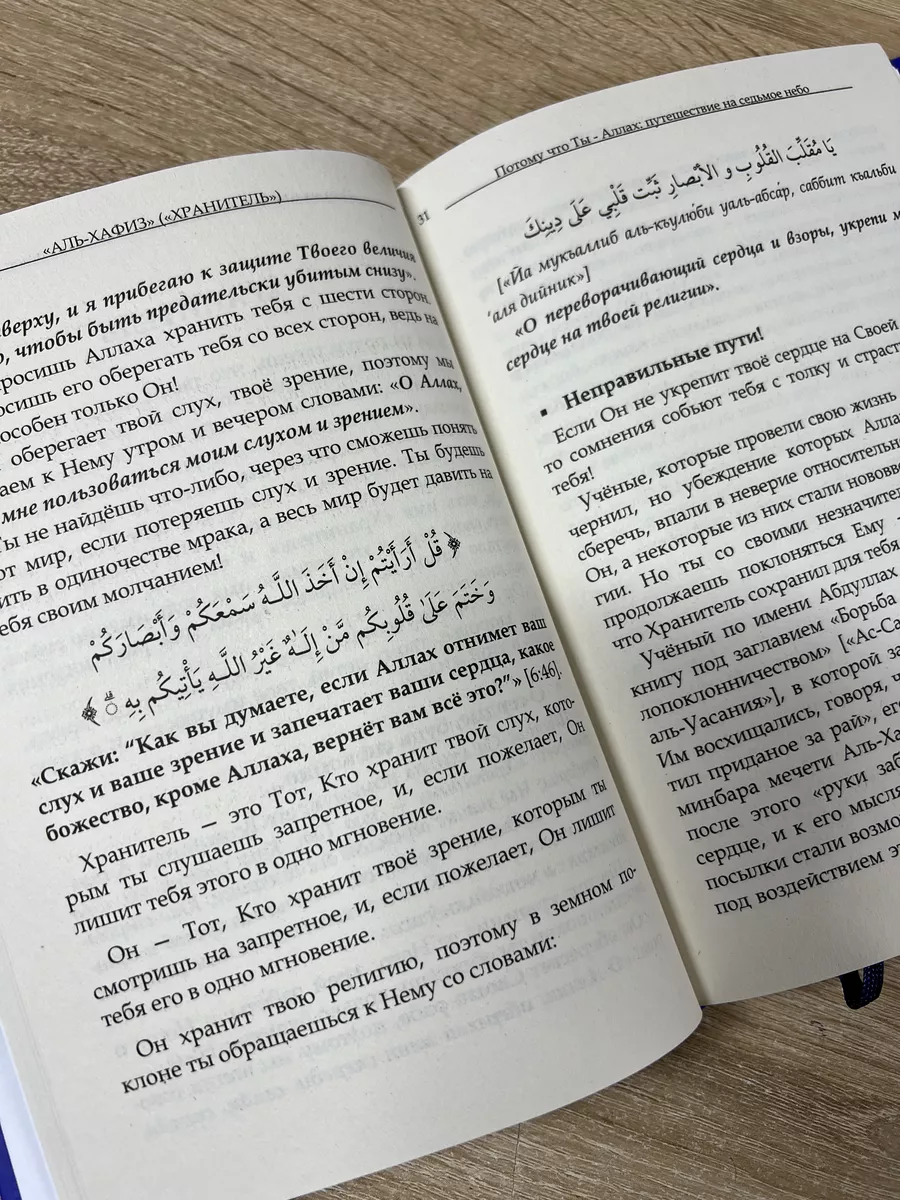 «АЛЬ-ХАФИЗ» («ХРАНИТЕЛЬ»)
31
верху, и я прибегаю к защите Твоего величия
чтобы быть предательски убитым снизу».
росишь Аллаха хранить тебя с шести сторон.
осишь его оберегать тебя со всех сторон, ведь на
особен только Он!
оберегает твой слух, твоё зрение, поэтому мы
аем к Нему утром и вечером словами: «О Аллах,
мне пользоваться моим слухом и зрением».
ы не найдёшь что-либо, через что сможешь понять
от мир, если потеряешь слух и зрение. Ты будешь
ить в одиночестве мрака, а весь мир будет давить на
ебя своим молчанием!
﴿ قُلْ أَرَأَيْتُمْ إِنْ أَخَذَ اللَّهُ سَمْعَكُمْ وَأَبْصَارَكُمْ
وَخَتَمَ عَلَىٰ قُلُوبِكُم مَّنْ إِلَٰهٌ غَيْرُ اللَّهِ يَأْتِيكُم بِهِ ۗ ﴾
«Скажи: “Как вы думаете, если Аллах отнимет ваш
слух и ваше зрение и запечатает ваши сердца, какое
божество, кроме Аллаха, вернёт вам всё это?”» [6:46].
Хранитель — это Тот, Кто хранит твой слух, кото-
рым ты слушаешь запретное, и, если пожелает, Он
лишит тебя этого в одно мгновение.
Он — Тот, Кто хранит твоё зрение, которым ты
смотришь на запретное, и, если пожелает, Он лишит
тебя его в одно мгновение.
Он хранит твою религию, поэтому в земном по-
клоне ты обращаешься к Нему со словами:
Потому что Ты - Аллах: путешествие на седьмое небо
يَا مُقَلِّبَ القُلُوبِ و الأَبْصَارِ ثَبِّت قَلْبِي عَلَى دِينِكَ
[«Йа мукъаллиб аль-къулю́би уаль-абса́р, саббит къальби
‘аля дийник»]
«О переворачивающий сердца и взоры, укрепи м
сердце на твоей религии».
▪ Неправильные пути!
Если Он не укрепит твоё сердце на Своей
то сомнения собьют тебя с толку и страст
тебя!
Учёные, которые провели свою жизнь
чернил, но убеждение которых Алла
сберечь, впали в неверие относительн
Он, а некоторые из них стали нововве
гии. Но ты со своими незначител
продолжаешь поклоняться Ему -
что Хранитель сохранил для тебя
Учёный по имени Абдуллах
книгу под заглавием «Борьба
лопоклонничеством» [«Ас-Са
аль-Уасания»], в которой за
Им восхищались, говоря, ч
тил приданое за рай», ег
минбара мечети Аль-Ха
после этого «руки заб
сердце, и к его мысля
посылки стали возмо
под воздействием э